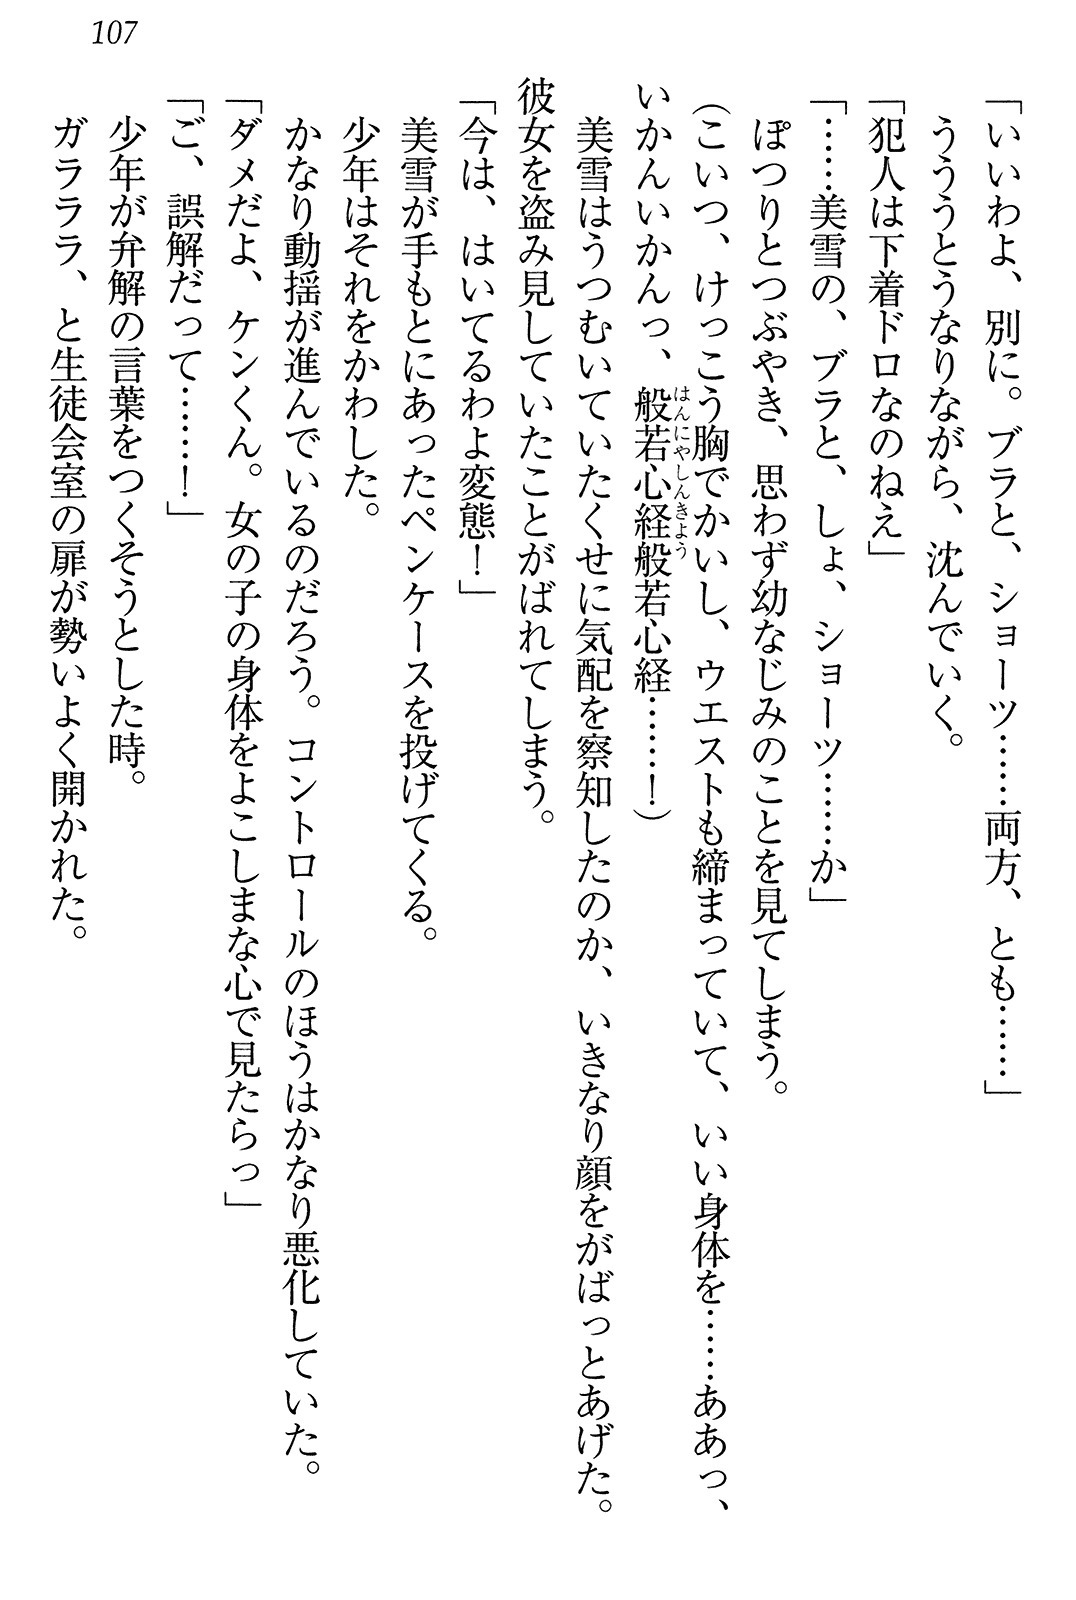 107
「いいわよ、別に。ブラと、ショーツ……両方、とも……」
　うううとうなりながら、沈んでいく。
「犯人は下着ドロなのねえ」
「……美雪の、ブラと、しょ、ショーツ……か」
　ぽつりとつぶやき、思わず幼なじみのことを見てしまう。
（こいつ、けっこう胸でかいし、ウエストも締まっていて、いい身体を……ああっ、
いかんいかんっ、般若心経般若心経……！）
はんにやしんきよう
　美雪はうつむいていたくせに気配を察知したのか、いきなり顔をがばっとあげた。
彼女を盗み見していたことがばれてしまう。
「今は、はいてるわよ変態！」
　美雪が手もとにあったペンケースを投げてくる。
　少年はそれをかわした。
　かなり動揺が進んでいるのだろう。コントロールのほうはかなり悪化していた。
「ダメだよ、ケンくん。女の子の身体をよこしまな心で見たらっ」
「ご、誤解だって……！」
　少年が弁解の言葉をつくそうとした時。
　ガラララ、と生徒会室の扉が勢いよく開かれた。